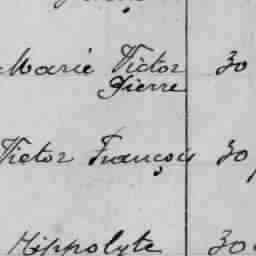 Marie Victor 30
Pierre
Victor François 30
Hippolyte 30